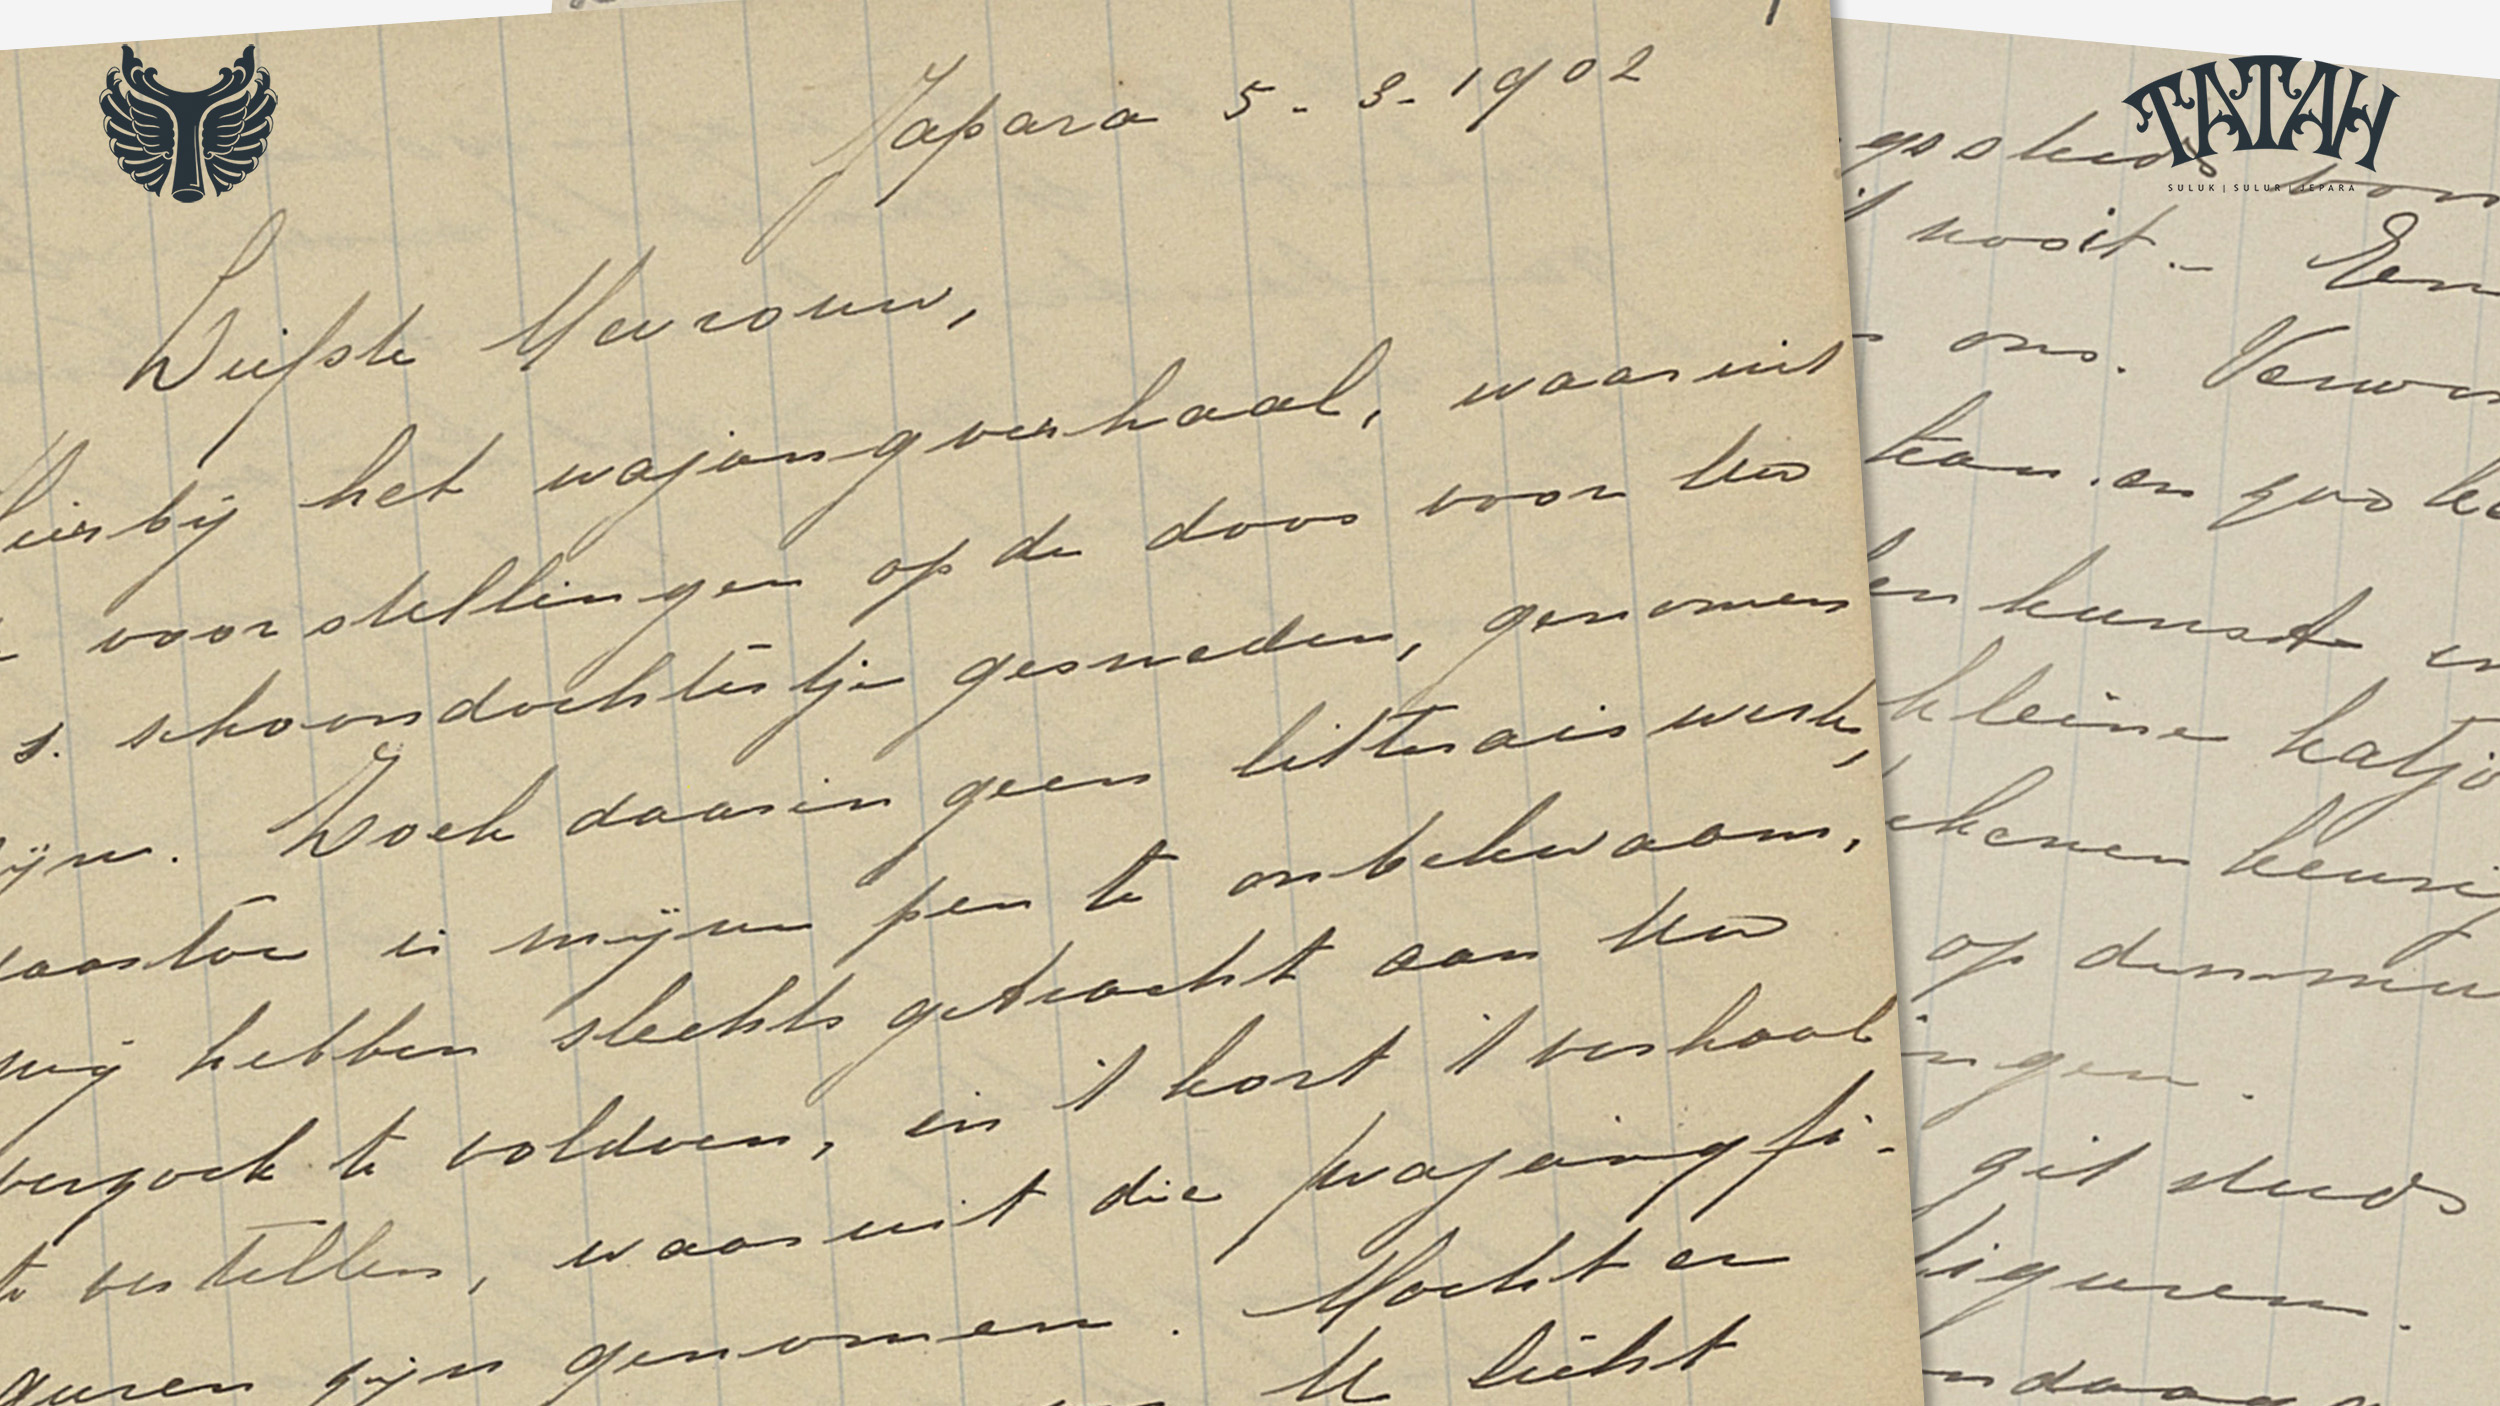 Japara 5-3-1902
Liefste Mevrouw,
Hierbij het wajangverhaal, waaruit
voorstellingen op de doos voor Uw
s. schoondochtertje gesneden, genomen
zijn. Zoek daarin geen litterair werk,
daartoe is mijne pen te onbekwaam,
wij hebben slechts getracht aan Uw
verzoek te voldoen, in 't kort 't verhaal
te vertellen, waaruit die wajangfi-
guren zijn genomen. Mocht er
U licht
TATAH
SULUK | SULUR | JEPARA
nooit.- En
ons. Verwo
kan en zoo
en kunst
kleine katjo
op den
ingen.
git steeds
figuren.